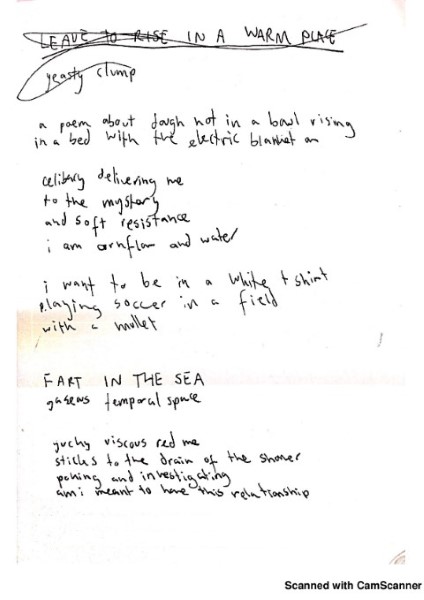 LEAVE TO RISE IN A WARM PLACE
yeasty clump
a poem about dough not in a bowl rising
in a bed with the electric blanket on
celibacy delivering me
to the mystery
and soft resistance
i am cornflour and water
i want to be in a white t shirt
playing soccer in a field
with a mullet
FART IN THE SEA
temporal space
yuchy viscous red me
sticks to the drain of the shower
poking and investigating
am i meant to have this relationship
Scanned with CamScanner